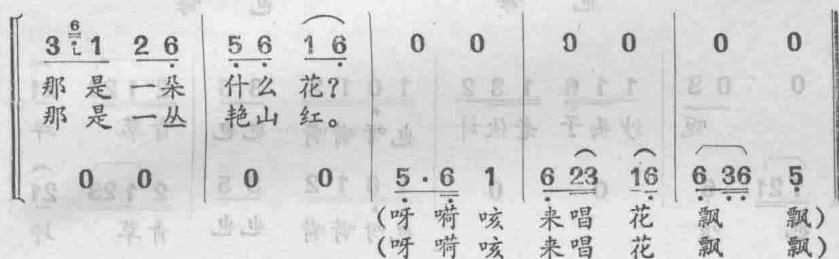 3 6 1 2 6 | 5 6 1 6 | 0 0 | 0 0 | 0 0
那 是 一 朵 什 么 花?
那 是 一 丛 艳 山 红。
0 0 | 0 0 | 5 · 6 1 | 6 23 16 | 6 36 5
(呀 嗬 咳 来 唱 花 飘 飘)
(呀 嗬 咳 来 唱 花 飘 飘)